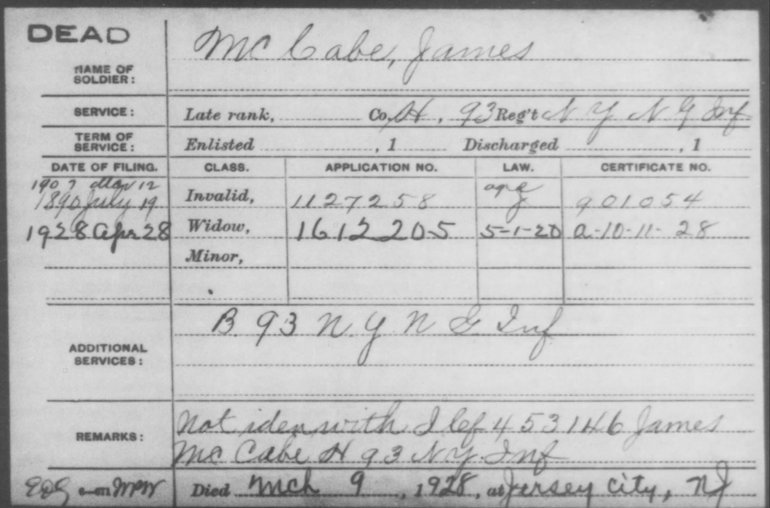 DEAD
Mc Cabe, James
NAME OF
SOLDIER:
SERVICE: Late rank, Co. H, 93 Reg't N Y N G Inf
TERM OF
SERVICE: Enlisted , 1 Discharged , 1
DATE OF FILING. CLASS. APPLICATION NO. LAW. CERTIFICATE NO.
1907 Mar 12
1890 July 19 Invalid, 1127258 901054
1928 Apr 28 Widow, 1612205 5-1-20 a-10-11-28
Minor,
B 93 N Y N G Inf
ADDITIONAL
SERVICES:
REMARKS: Not iden with I 453146 James
Mc Cabe H 93 N Y Inf
Died Mch 9, 1928, at Jersey City, NJ